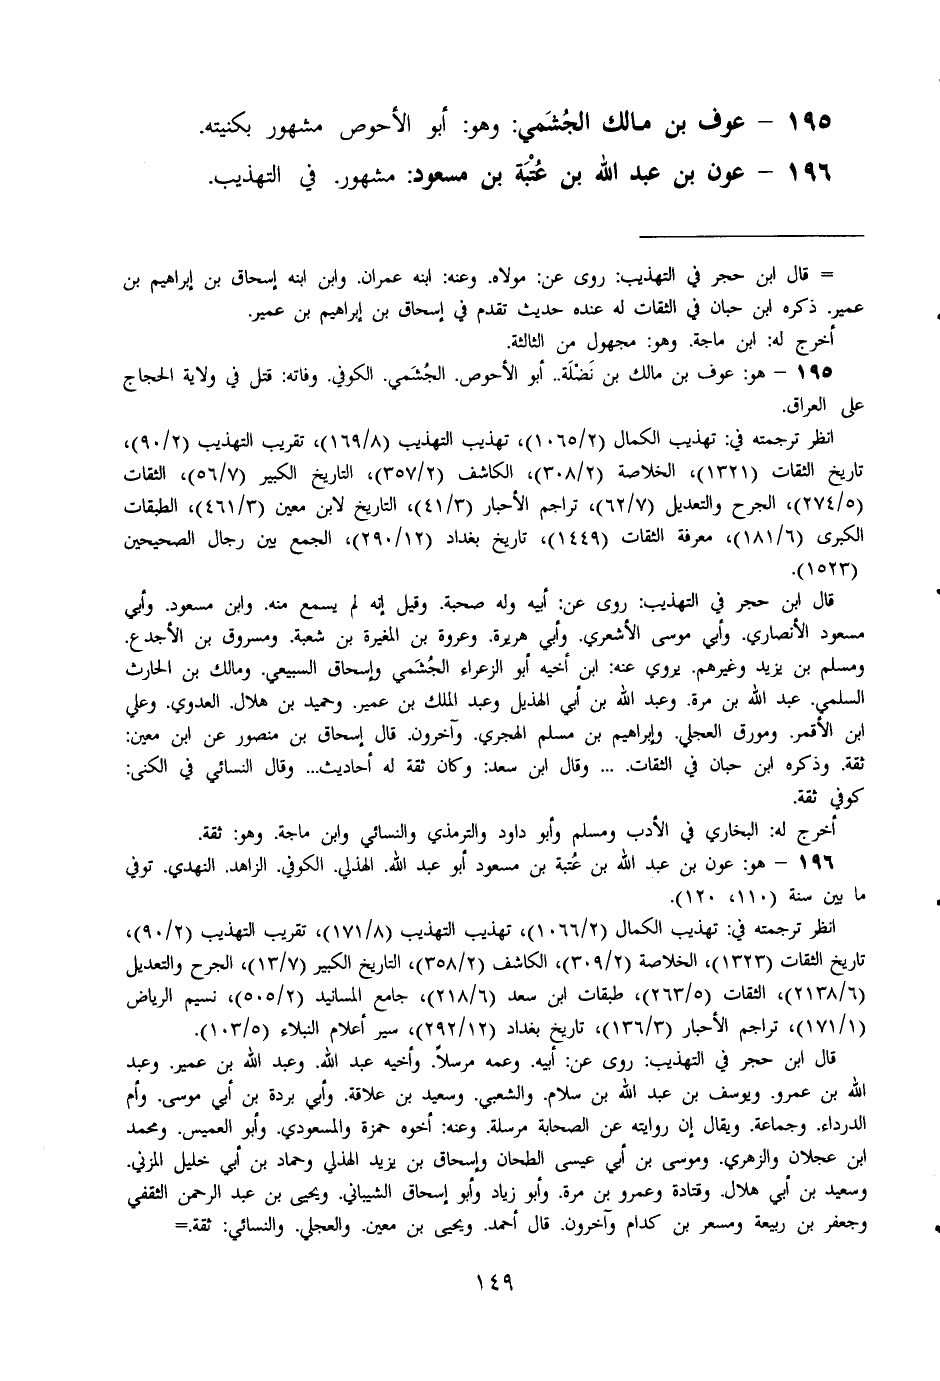 ١٩٥ – عوف بن مالك الجُشَمي: وهو: أبو الأحوص مشهور بكنيته.
١٩٦ – عون بن عبد الله بن عُتْبَة بن مسعود: مشهور. في التهذيب.
= قال ابن حجر في التهذيب: روى عن: مولاه. وعنه: ابنه عمران. وابن ابنه إسحاق بن إبراهيم بن
عمير. ذكره ابن حبان في الثقات له عنده حديث تقدم في إسحاق بن إبراهيم بن عمير.
أخرج له: ابن ماجة. وهو: مجهول من الثالثة.
١٩٥ – هو: عوف بن مالك بن نَضْلَة.. أبو الأحوص. الجُشَمي. الكوفي. وفاته: قتل في ولاية الحجاج
على العراق.
انظر ترجمته في: تهذيب الكمال (١٠٦٥/٢)، تهذيب التهذيب (١٦٩/٨)، تقريب التهذيب (٩٠/٢)،
تاريخ الثقات (١٣٢١)، الخلاصة (٣٠٨/٢)، الكاشف (٣٥٧/٢)، التاريخ الكبير (٥٦/٧)، الثقات
(٢٧٤/٥)، الجرح والتعديل (٦٢/٧)، تراجم الأحبار (٤١/٣)، التاريخ لابن معين (٤٦١/٣)، الطبقات
الكبرى (١٨١/٦)، معرفة الثقات (١٤٤٩)، تاريخ بغداد (٢٩٠/١٢)، الجمع بين رجال الصحيحين
(١٥٢٣).
قال ابن حجر في التهذيب: روى عن: أبيه وله صحبة. وقيل إنه لم يسمع منه. وابن مسعود. وأبي
مسعود الأنصاري. وأبي موسى الأشعري. وأبي هريرة. وعروة بن المغيرة بن شعبة. ومسروق بن الأجدع.
ومسلم بن يزيد وغيرهم. يروي عنه: ابن أخيه أبو الزعراء الجُشَمي وإسحاق السبيعي. ومالك بن الحارث
السلمي. عبد الله بن مرة. وعبد الله بن أبي الهذيل وعبد الملك بن عمير. وحميد بن هلال. العدوي. وعلي
ابن الأقمر. ومورق العجلي. وإبراهيم بن مسلم الهجري. وآخرون. قال إسحاق بن منصور عن ابن معين:
ثقة. وذكره ابن حبان في الثقات. ... وقال ابن سعد: وكان ثقة له أحاديث... وقال النسائي في الكنى:
كوفي ثقة.
أخرج له: البخاري في الأدب ومسلم وأبو داود والترمذي والنسائي وابن ماجة. وهو: ثقة.
١٩٦ – هو: عون بن عبد الله بن عُتبة بن مسعود أبو عبد الله. الهذلي. الكوفي. الزاهد. النهدي. توفي
ما بين سنة (١١٠، ١٢٠).
انظر ترجمته في: تهذيب الكمال (١٠٦٦/٢)، تهذيب التهذيب (١٧١/٨)، تقريب التهذيب (٩٠/٢)،
تاريخ الثقات (١٣٢٣)، الخلاصة (٣٠٩/٢)، الكاشف (٣٥٨/٢)، التاريخ الكبير (١٣/٧)، الجرح والتعديل
(٢١٣٨/٦)، الثقات (٢٦٣/٥)، طبقات ابن سعد (٢١٨/٦)، جامع المسانيد (٥٠٥/٢)، نسيم الرياض
(١٧١/١)، تراجم الأحبار (١٣٦/٣)، تاريخ بغداد (٢٩٢/١٢)، سير أعلام النبلاء (١٠٣/٥).
قال ابن حجر في التهذيب: روى عن: أبيه. وعمه مرسلاً. وأخيه عبد الله. وعبد الله بن عمير. وعبد
الله بن عمرو. ويوسف بن عبد الله بن سلام. والشعبي. وسعيد بن علاقة. وأبي بردة بن أبي موسى. وأم
الدرداء. وجماعة. ويقال إن روايته عن الصحابة مرسلة. وعنه: أخوه حمزة والمسعودي. وأبو العميس. ومحمد
ابن عجلان والزهري. وموسى بن أبي عيسى الطحان وإسحاق بن يزيد الهذلي وحماد بن أبي خليل المزني.
وسعيد بن أبي هلال. وقتادة وعمرو بن مرة. وأبو زياد وأبو إسحاق الشيباني. ويحيى بن عبد الرحمن الثقفي
وجعفر بن ربيعة ومسعر بن كدام وآخرون. قال أحمد. ويحيى بن معين. والعجلي. والنسائي: ثقة.=
١٤٩